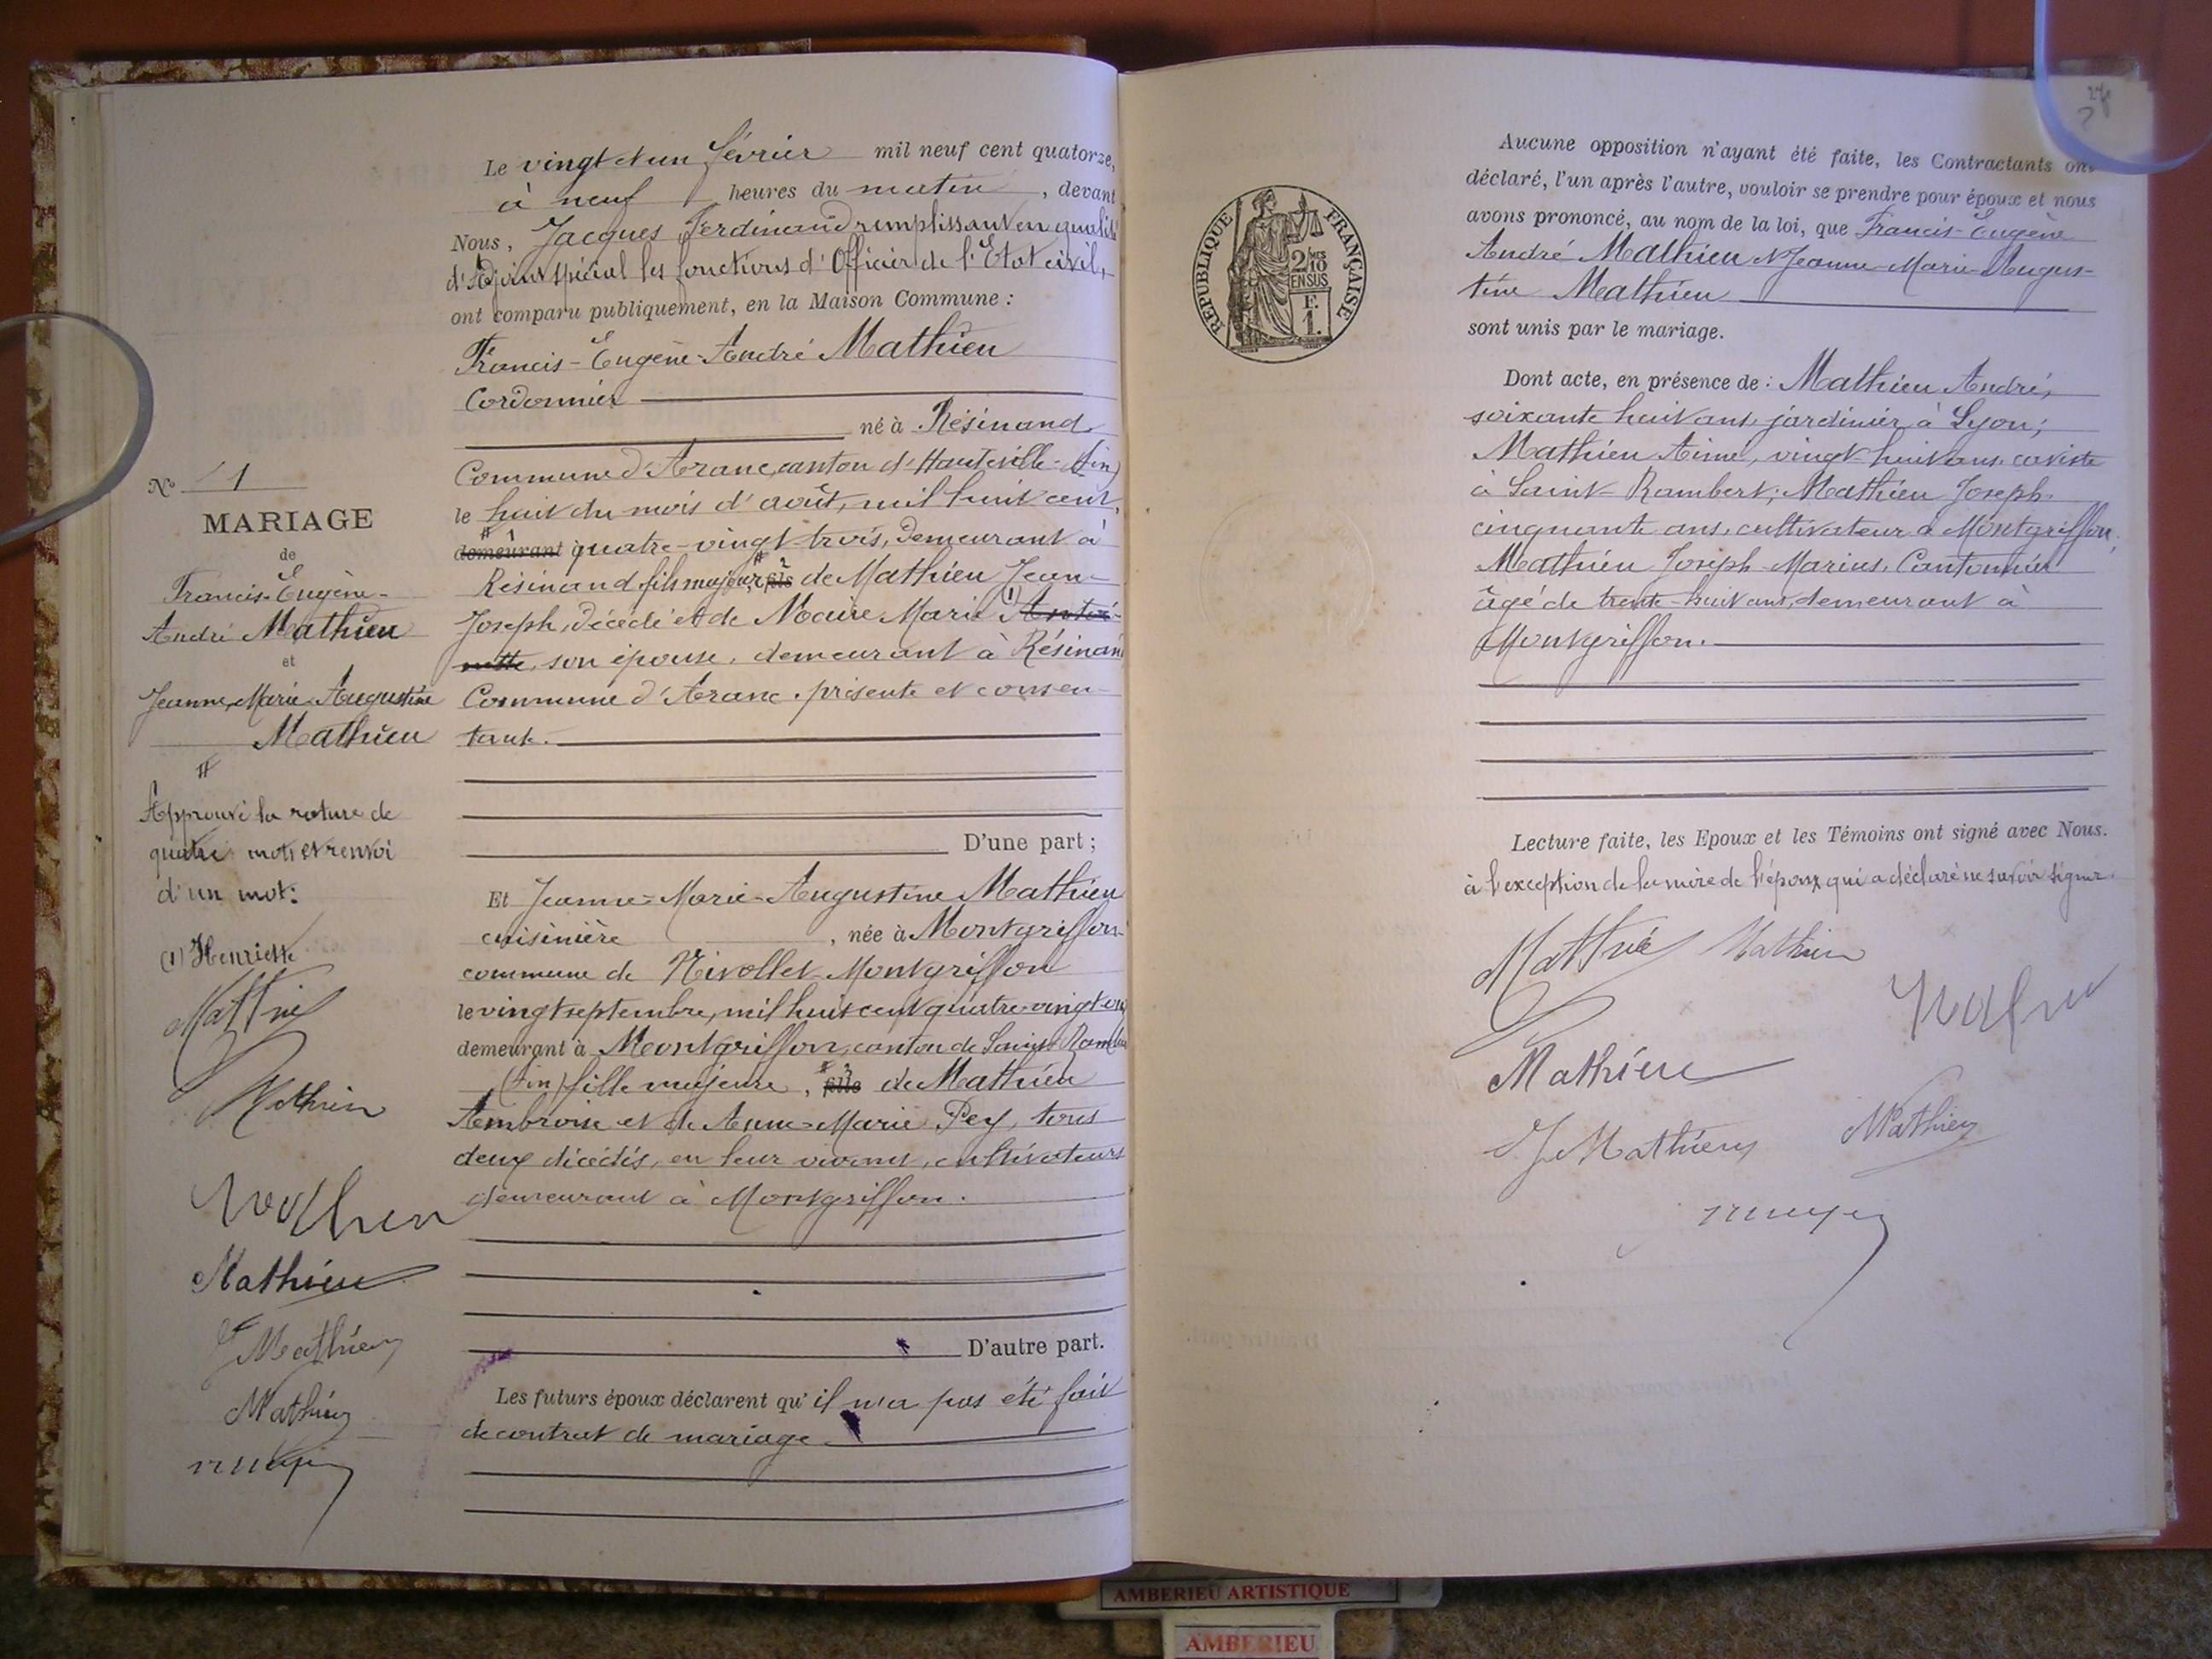 Le vingt et un février mil neuf cent quatorze,
à neuf heures du matin, devant
Nous, Jacques Ferdinand remplissant en qualité
d'Adjoint spécial les fonctions d'Officier de l'Etat civil,
ont comparu publiquement, en la Maison Commune :
Francis-Eugène-André Mathieu
Cordonnier
né à Résinand
Commune d'Aranc, canton d'Hauteville (Ain)
le huit du mois d'août, mil huit cent
demeurant quatre-vingt-trois, demeurant à
Résinand fils majeur, fils de Mathieu Jean-
Joseph, décédé et de Maire Marie (1) Antoi-
nette, son épouse, demeurant à Résinand
Commune d'Aranc, présente et consen-
tante.
D'une part ;
Et Jeanne-Marie-Augustine Mathieu
cuisinière, née à Montgriffon
commune de Nivollet-Montgriffon
le vingt septembre, mil huit cent quatre-vingt-onze
demeurant à Montgriffon, canton de Saint-Rambert
(Ain) fille majeure, fille de Mathieu
Ambroise et de Anne-Marie Pey, tous
deux décédés, en leur vivant, cultivateurs
demeurant à Montgriffon.
D'autre part.
Les futurs époux déclarent qu'il n'a pas été fait
de contrat de mariage
N° 1
MARIAGE
de
Francis-Eugène-
André Mathieu
et
Jeanne-Marie-Augustine
Mathieu
#
Approuvé la rature de
quatre mots et renvoi
d'un mot:
(1) Henriette
Mathieu
Mathieu
Mathieu
J Mathieu
Mathieu
27
RÉPUBLIQUE FRANÇAISE
2/10
EN SUS
F.
1.
Aucune opposition n'ayant été faite, les Contractants ont
déclaré, l'un après l'autre, vouloir se prendre pour époux et nous
avons prononcé, au nom de la loi, que Francis-Eugène
André Mathieu et Jeanne-Marie-Augus-
tine Mathieu
sont unis par le mariage.
Dont acte, en présence de : Mathieu André,
soixante huit ans, jardinier à Lyon;
Mathieu Aimé, vingt-huit ans, caviste
à Saint-Rambert; Mathieu Joseph
cinquante ans, cultivateur à Montgriffon,
Mathieu Joseph-Marius, Cantonnier
âgé de trente-huit ans, demeurant à
Montgriffon.
Lecture faite, les Epoux et les Témoins ont signé avec Nous.
à l'exception de la mère de l'époux qui a déclaré ne savoir signer.
Mathieu Mathieu
Mathieu
J Mathieu Mathieu
AMBERIEU ARTISTIQUE
AMBERIEU